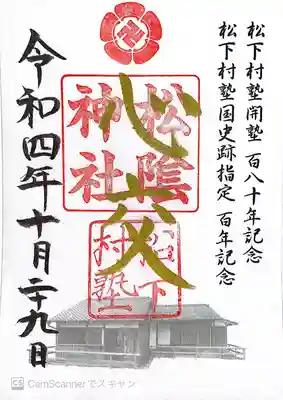 松下村塾開塾 百八十年記念
松下村塾国史跡指定 百年記念
松陰
神社
松下
村塾
令和四年十月二十九日
CS CamScannerでスキャン